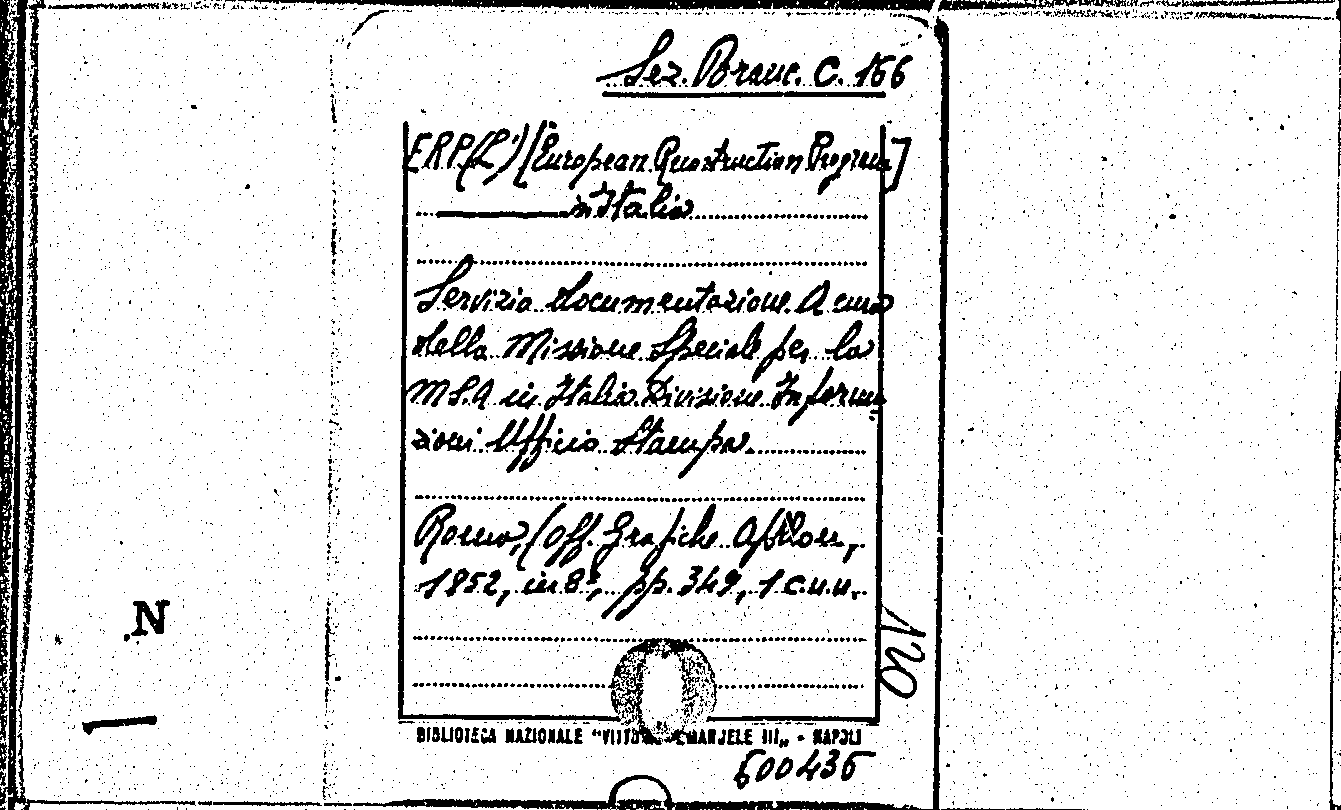 Sez. Branc. C. 166
ERP (L') [European Reconstruction Program]
in Italia
Servizio documentazione. A cura
della Missione Speciale per la
MSA in Italia. Divisione Informa
zioni Ufficio Stampa.
Roma, (Off. Grafiche
1952, in 8°, pp. 349, 1 c.n.n.
N
BIBLIOTECA NAZIONALE "VITTORIO EMANUELE III" - NAPOLI
600436